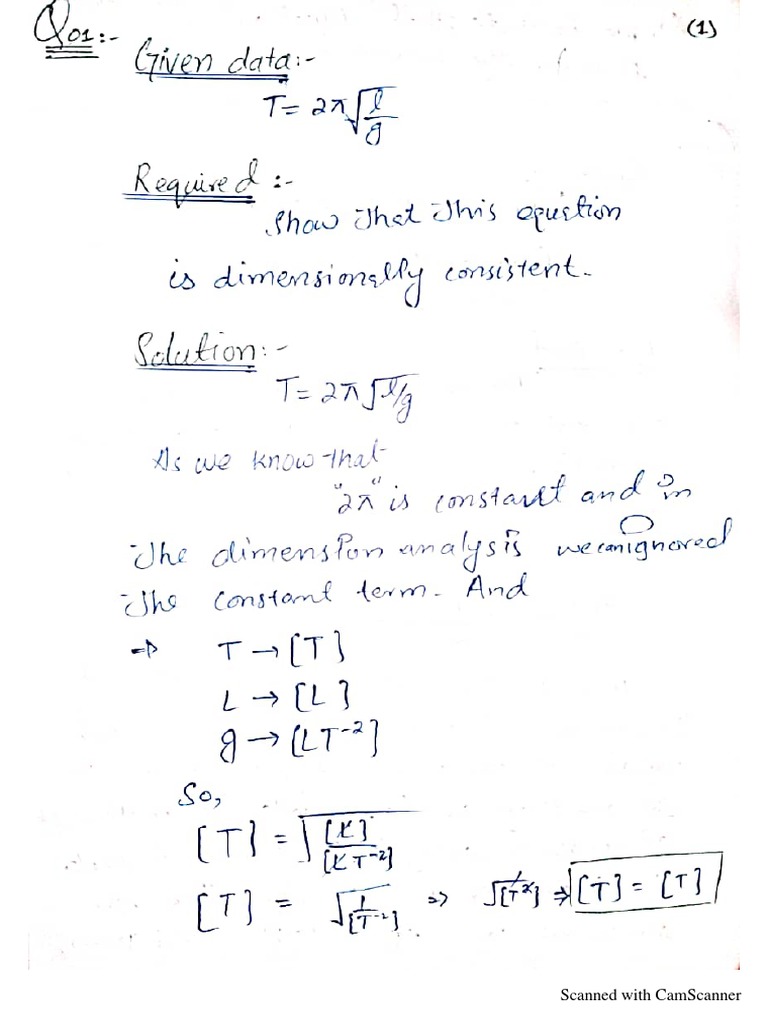 Q01:-
(1)
Given data:-
T = 2π√l/g
Required :-
Show that this equation
is dimensionally consistent.
Solution:-
T = 2π√l/g
As we know that
"2π" is constant and in
the dimension analysis we can ignored
the constant term. And
⇒ T → [T]
L → [L]
g → [LT⁻²]
So,
[T] = √[L]/[LT⁻²]
[T] = √1/[T⁻²] ⇒ √[T²] ⇒ [T] = [T]
Scanned with CamScanner